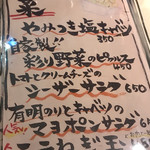 菜
やみつき塩キャベツ
350
自家製!!
彩り野菜のピクルス
トマトとクリームチーズの
シーザーサラダ 650
有明のりとキャベツの
マヨポンサラダ 650